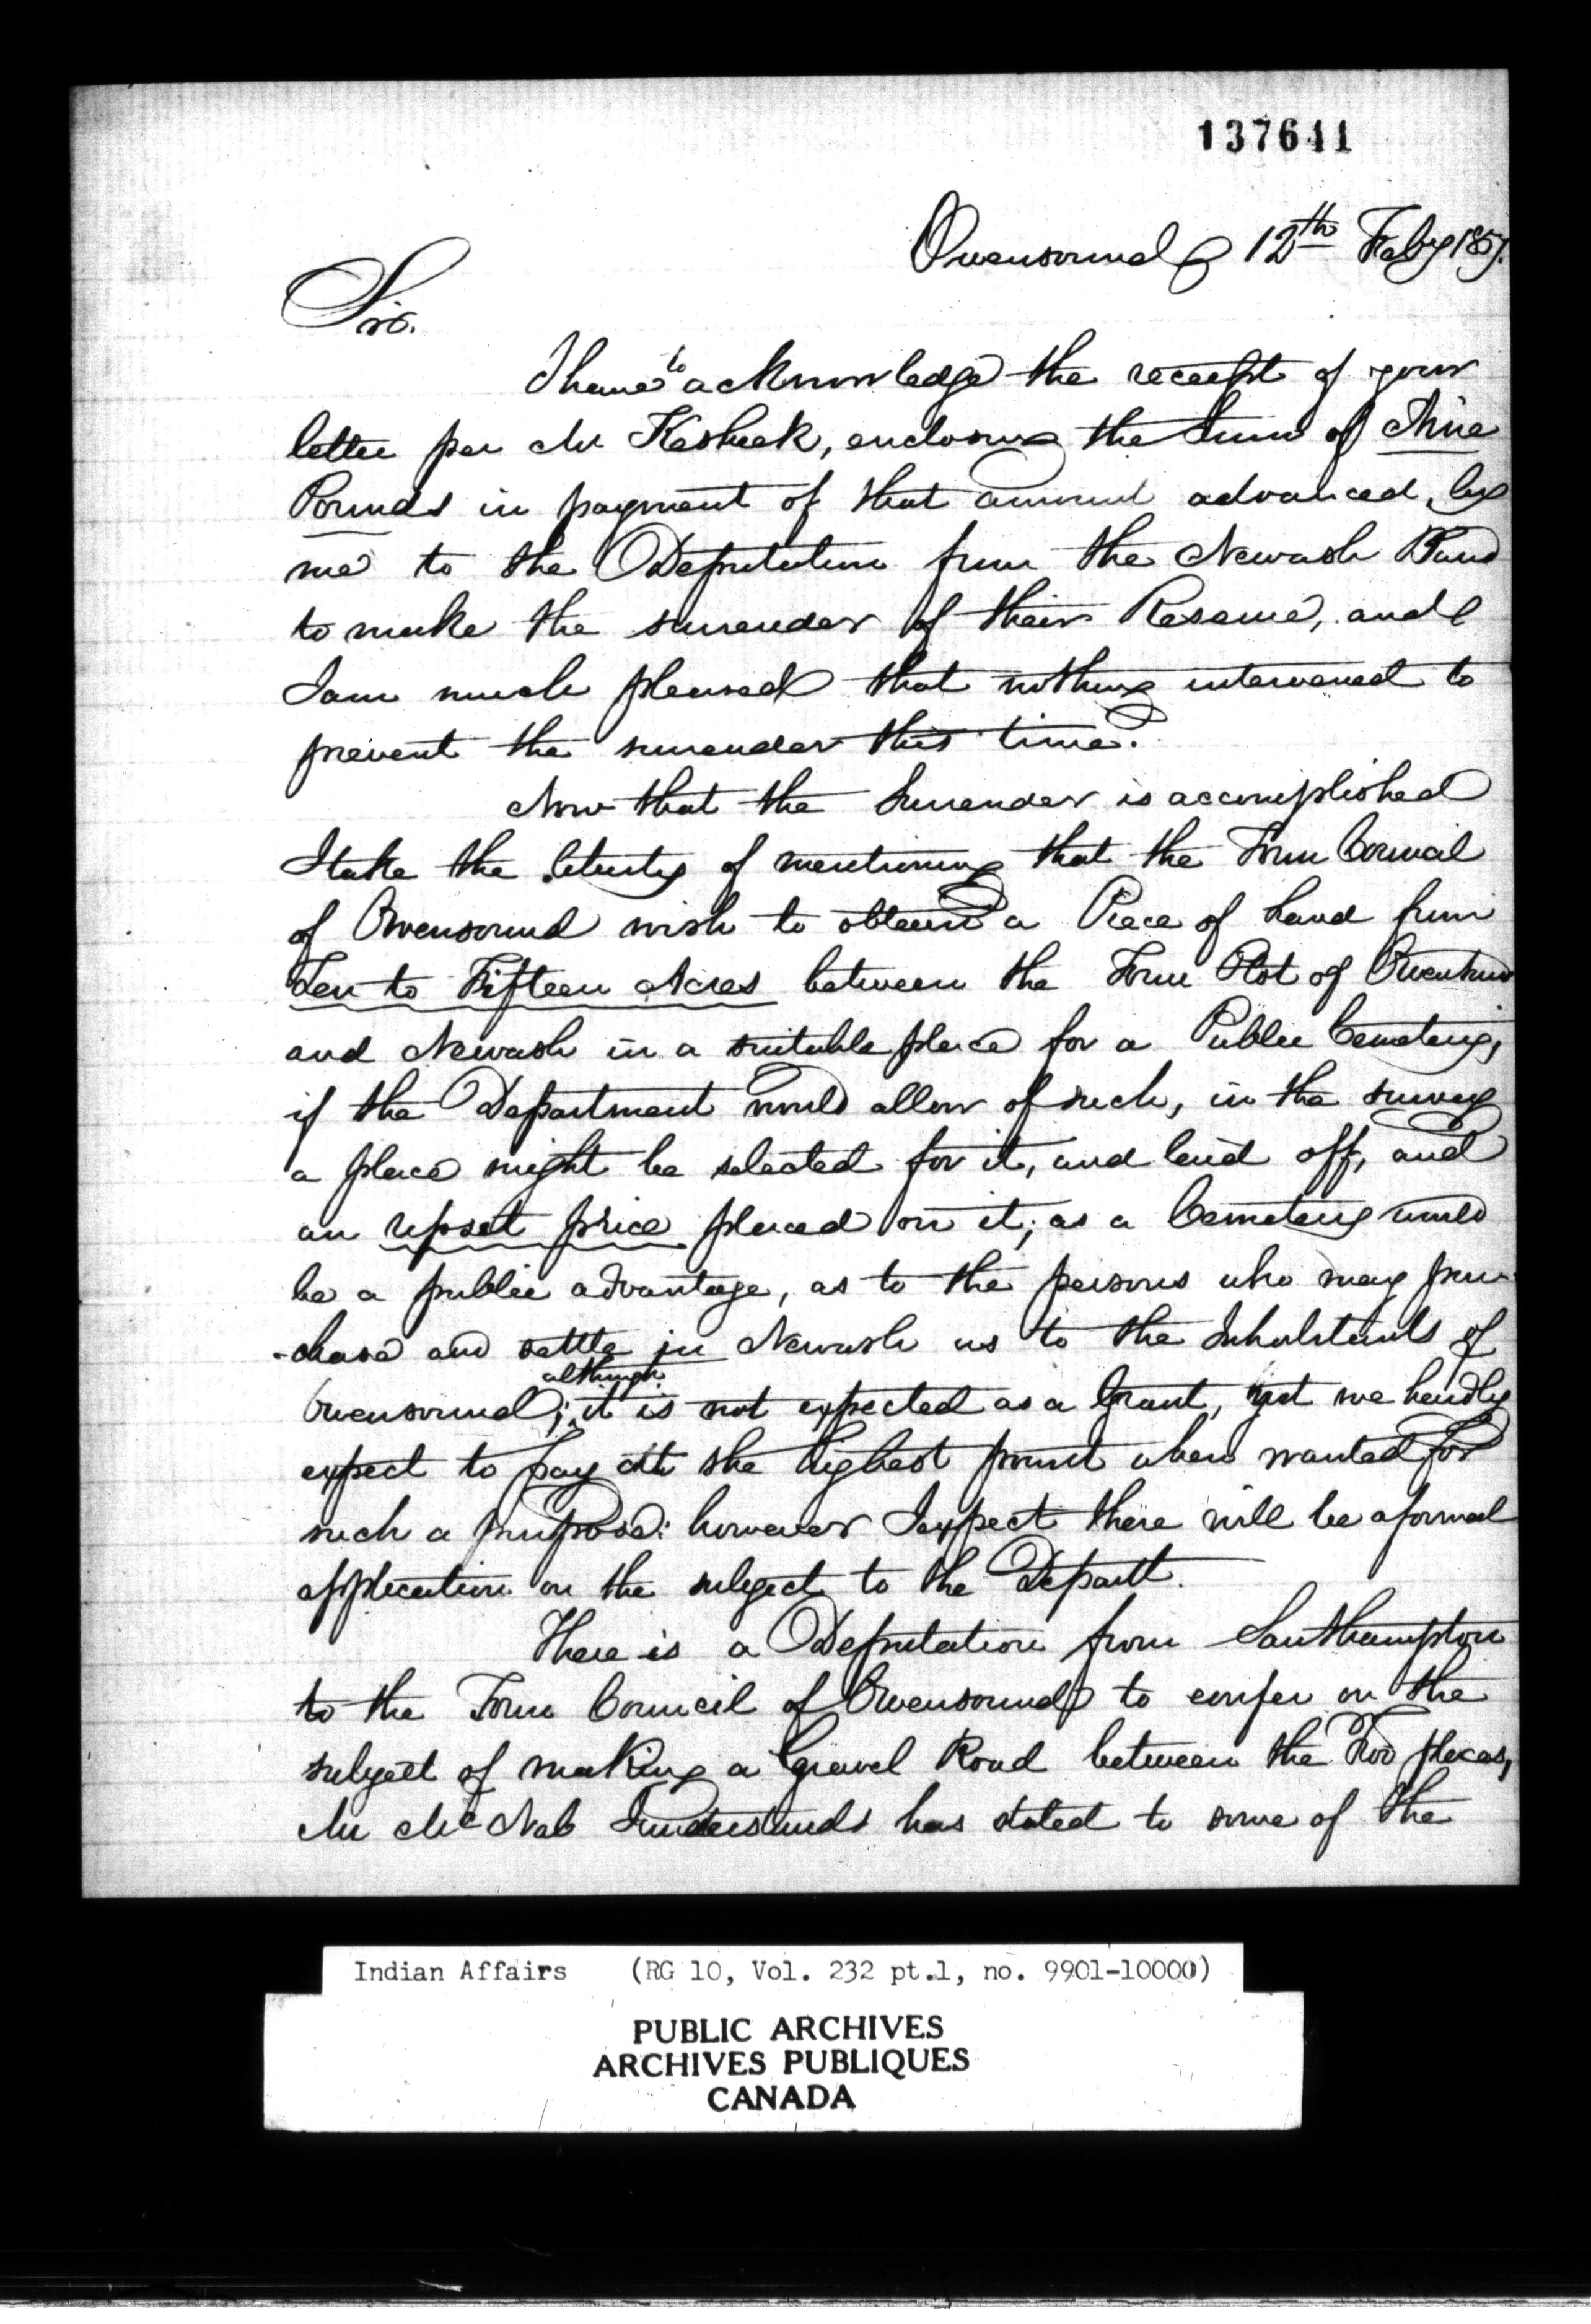 137641
Owensound 12th Feby 1857.
Sir.
I have to acknowledge the receipt of your
letter per Mr Kesheek, enclosing the Sum of Nine
Pounds in payment of that amount advanced, by
me to the Deputation from the Newash Band
to make the surender of their Reserve, and
I am much pleased that nothing intervened to
prevent the surender this time.
Now that the Surender is accomplished
I take the liberty of mentioning that the Town Council
of Owensound wish to obtain a Piece of Land from
Ten to Fifteen Acres between the Town Plot of Owensund
and Newash in a suitable place for a Public Cemetery,
if the Department would allow of such, in the survey
a place might be selected for it, and laid off, and
an upset price placed on it; as a Cemetery would
be a public advantage, as to the persons who may pur-
-chase and settle in Newash as to the Inhabitants of
Owensound; although it is not expected as a Grant, yet we hardly
expect to pay at the highest point when wanted for
such a purpose: however I expect there will be a formal
application on the subject to the Depart.
There is a Deputation from Southampton
to the Town Council of Owensound to confer on the
subject of making a Gravel Road between the Two places,
Mr McNab I understands has stated to some of the
Indian Affairs (RG 10, Vol. 232 pt.1, no. 9901-10000)
PUBLIC ARCHIVES
ARCHIVES PUBLIQUES
CANADA